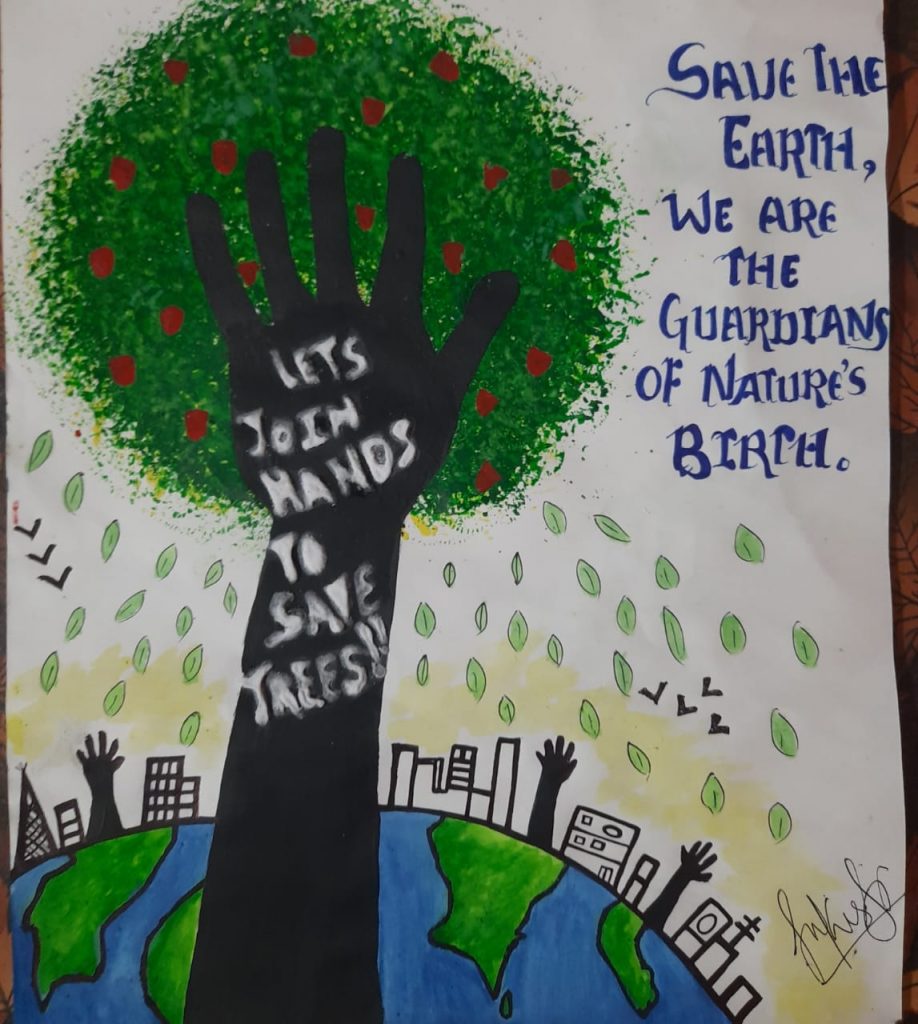 SAVE THE
EARTH,
WE ARE
THE
GUARDIANS
OF NATURE'S
BIRTH.
LETS
JOIN
HANDS
TO
SAVE
TREES!!